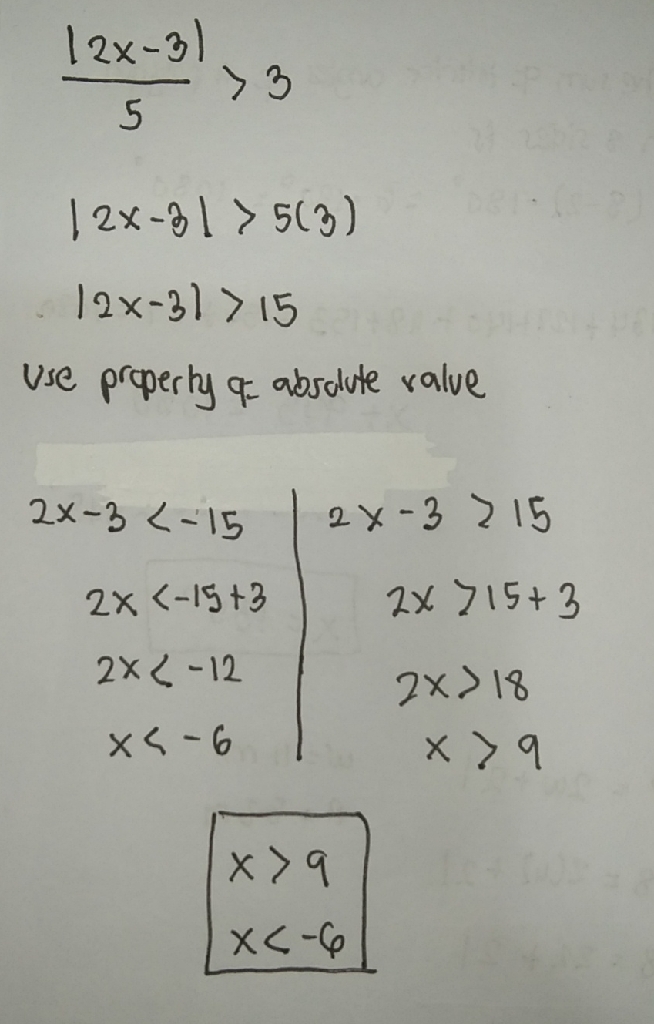 |2x-3|
5
> 3
|2x-3| > 5(3)
|2x-3| > 15
Use property of absolute value
2x-3 <-15
2x <-15+3
2x < -12
x < -6
2x-3 > 15
2x > 15+3
2x > 18
x > 9
x > 9
x < -6